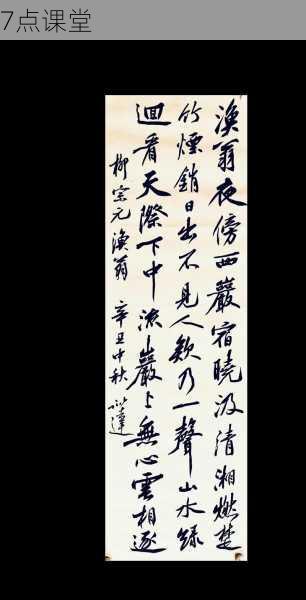 7点课堂
漁翁夜傍西巖宿曉汲清湘燃楚
竹煙銷日出不見人欸乃一聲山水綠
迴看天際下中流巖上無心雲相逐
柳宗元漁翁 辛丑中秋